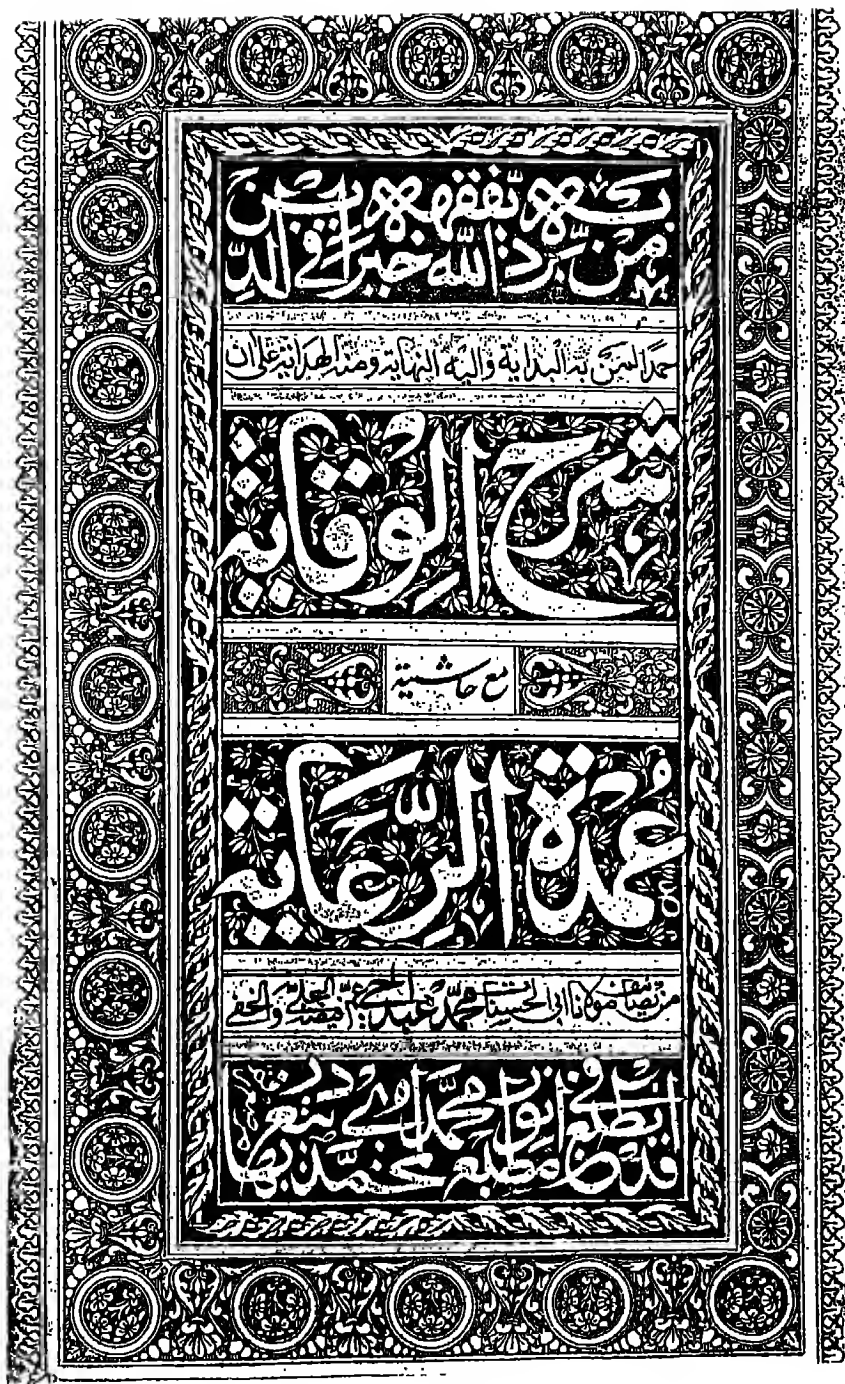 من يرد الله به خيرا يفقهه في الدين
حمدا لمن به البداية واليه النهاية ومنه الهداية على ان
شرح الوقاية
مع حاشية
عمدة الرعاية
من تصانيف مولانا ابى الحسنات محمد عبد الحي
قد انطبع في مطبع انوار محمدي
محمد